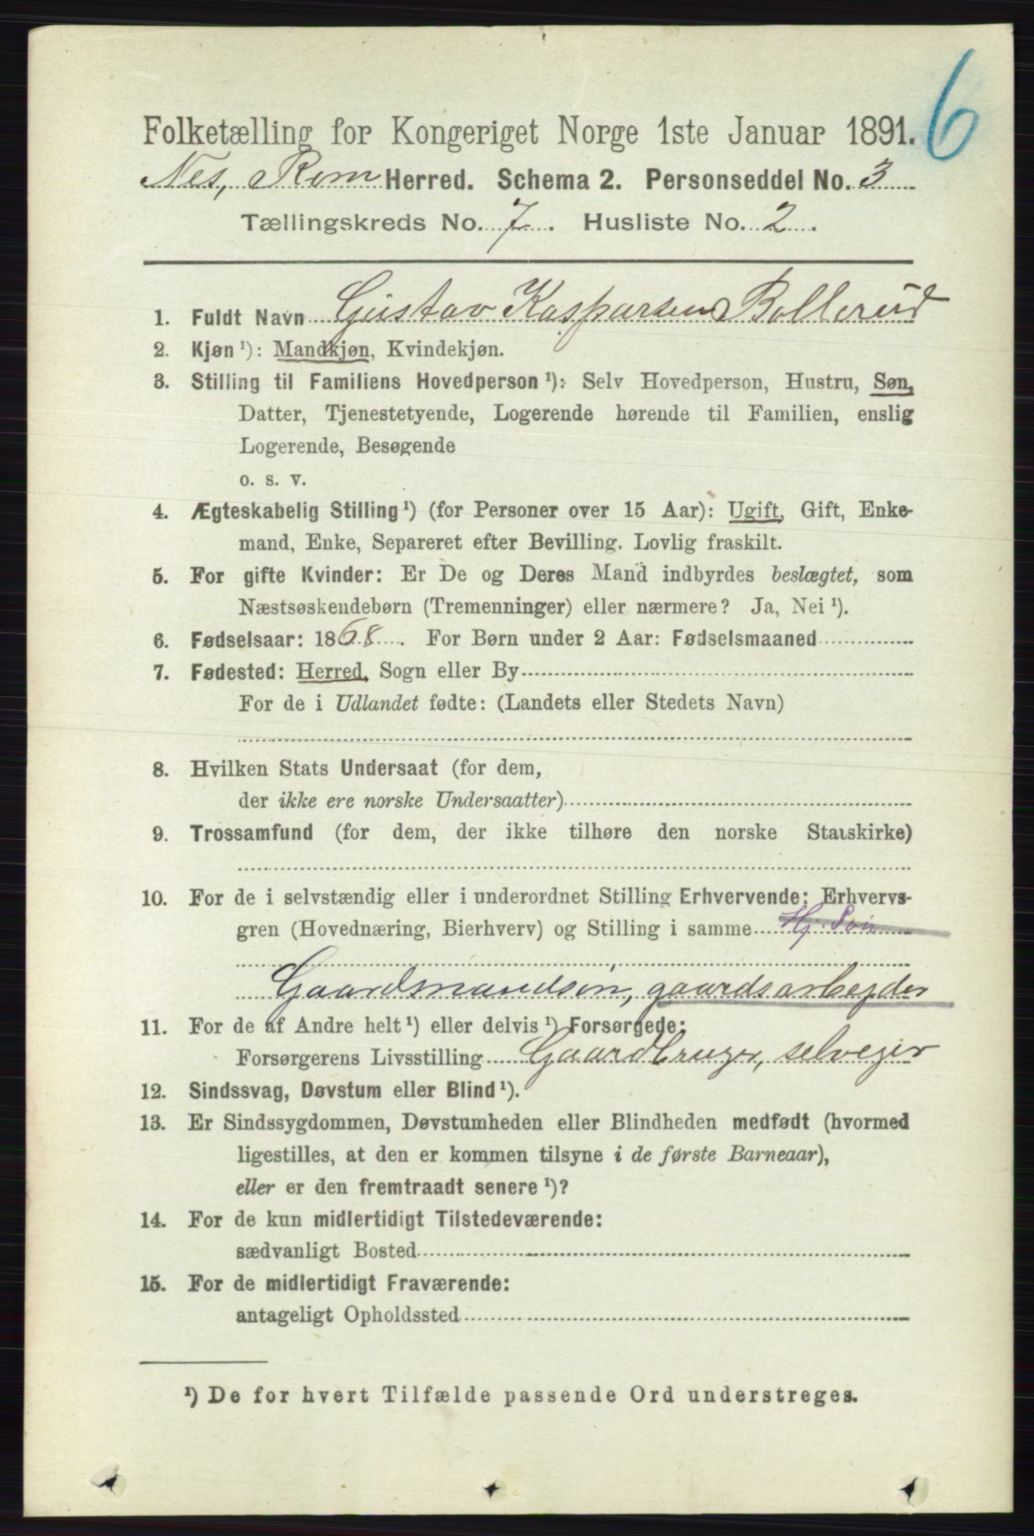 6
Folketælling for Kongeriget Norge 1ste Januar 1891.
Nes, Rom Herred. Schema 2. Personseddel No. 3
Tællingskreds No. 7. Husliste No. 2.
1. Fuldt Navn Gustav Kaspersen Bollerud
2. Kjøn ¹): Mandkjøn, Kvindekjøn.
3. Stilling til Familiens Hovedperson ¹): Selv Hovedperson, Hustru, Søn,
Datter, Tjenestetyende, Logerende hørende til Familien, enslig
Logerende, Besøgende
o. s. v.
4. Ægteskabelig Stilling ¹) (for Personer over 15 Aar): Ugift, Gift, Enke-
mand, Enke, Separeret efter Bevilling. Lovlig fraskilt.
5. For gifte Kvinder: Er De og Deres Mand indbyrdes beslægtet, som
Næstsøskendebørn (Tremenninger) eller nærmere? Ja, Nei ¹).
6. Fødselsaar: 1868. For Børn under 2 Aar: Fødselsmaaned
7. Fødested: Herred, Sogn eller By
For de i Udlandet fødte: (Landets eller Stedets Navn)
8. Hvilken Stats Undersaat (for dem,
der ikke ere norske Undersaatter)
9. Trossamfund (for dem, der ikke tilhøre den norske Statskirke)
10. For de i selvstændig eller i underordnet Stilling Erhvervende: Erhvervs-
gren (Hovednæring, Bierhverv) og Stilling i samme Hj. Søn
Gaardsmandsøn, gaardsarbeyder
11. For de af Andre helt ¹) eller delvis ¹) Forsørgede:
Forsørgerens Livsstilling Gaardbruger, selveger
12. Sindssvag, Døvstum eller Blind ¹).
13. Er Sindssygdommen, Døvstumheden eller Blindheden medfødt (hvormed
ligestilles, at den er kommen tilsyne i de første Barneaar),
eller er den fremtraadt senere ¹)?
14. For de kun midlertidigt Tilstedeværende:
sædvanligt Bosted
15. For de midlertidigt Fraværende:
antageligt Opholdssted
¹) De for hvert Tilfælde passende Ord understreges.